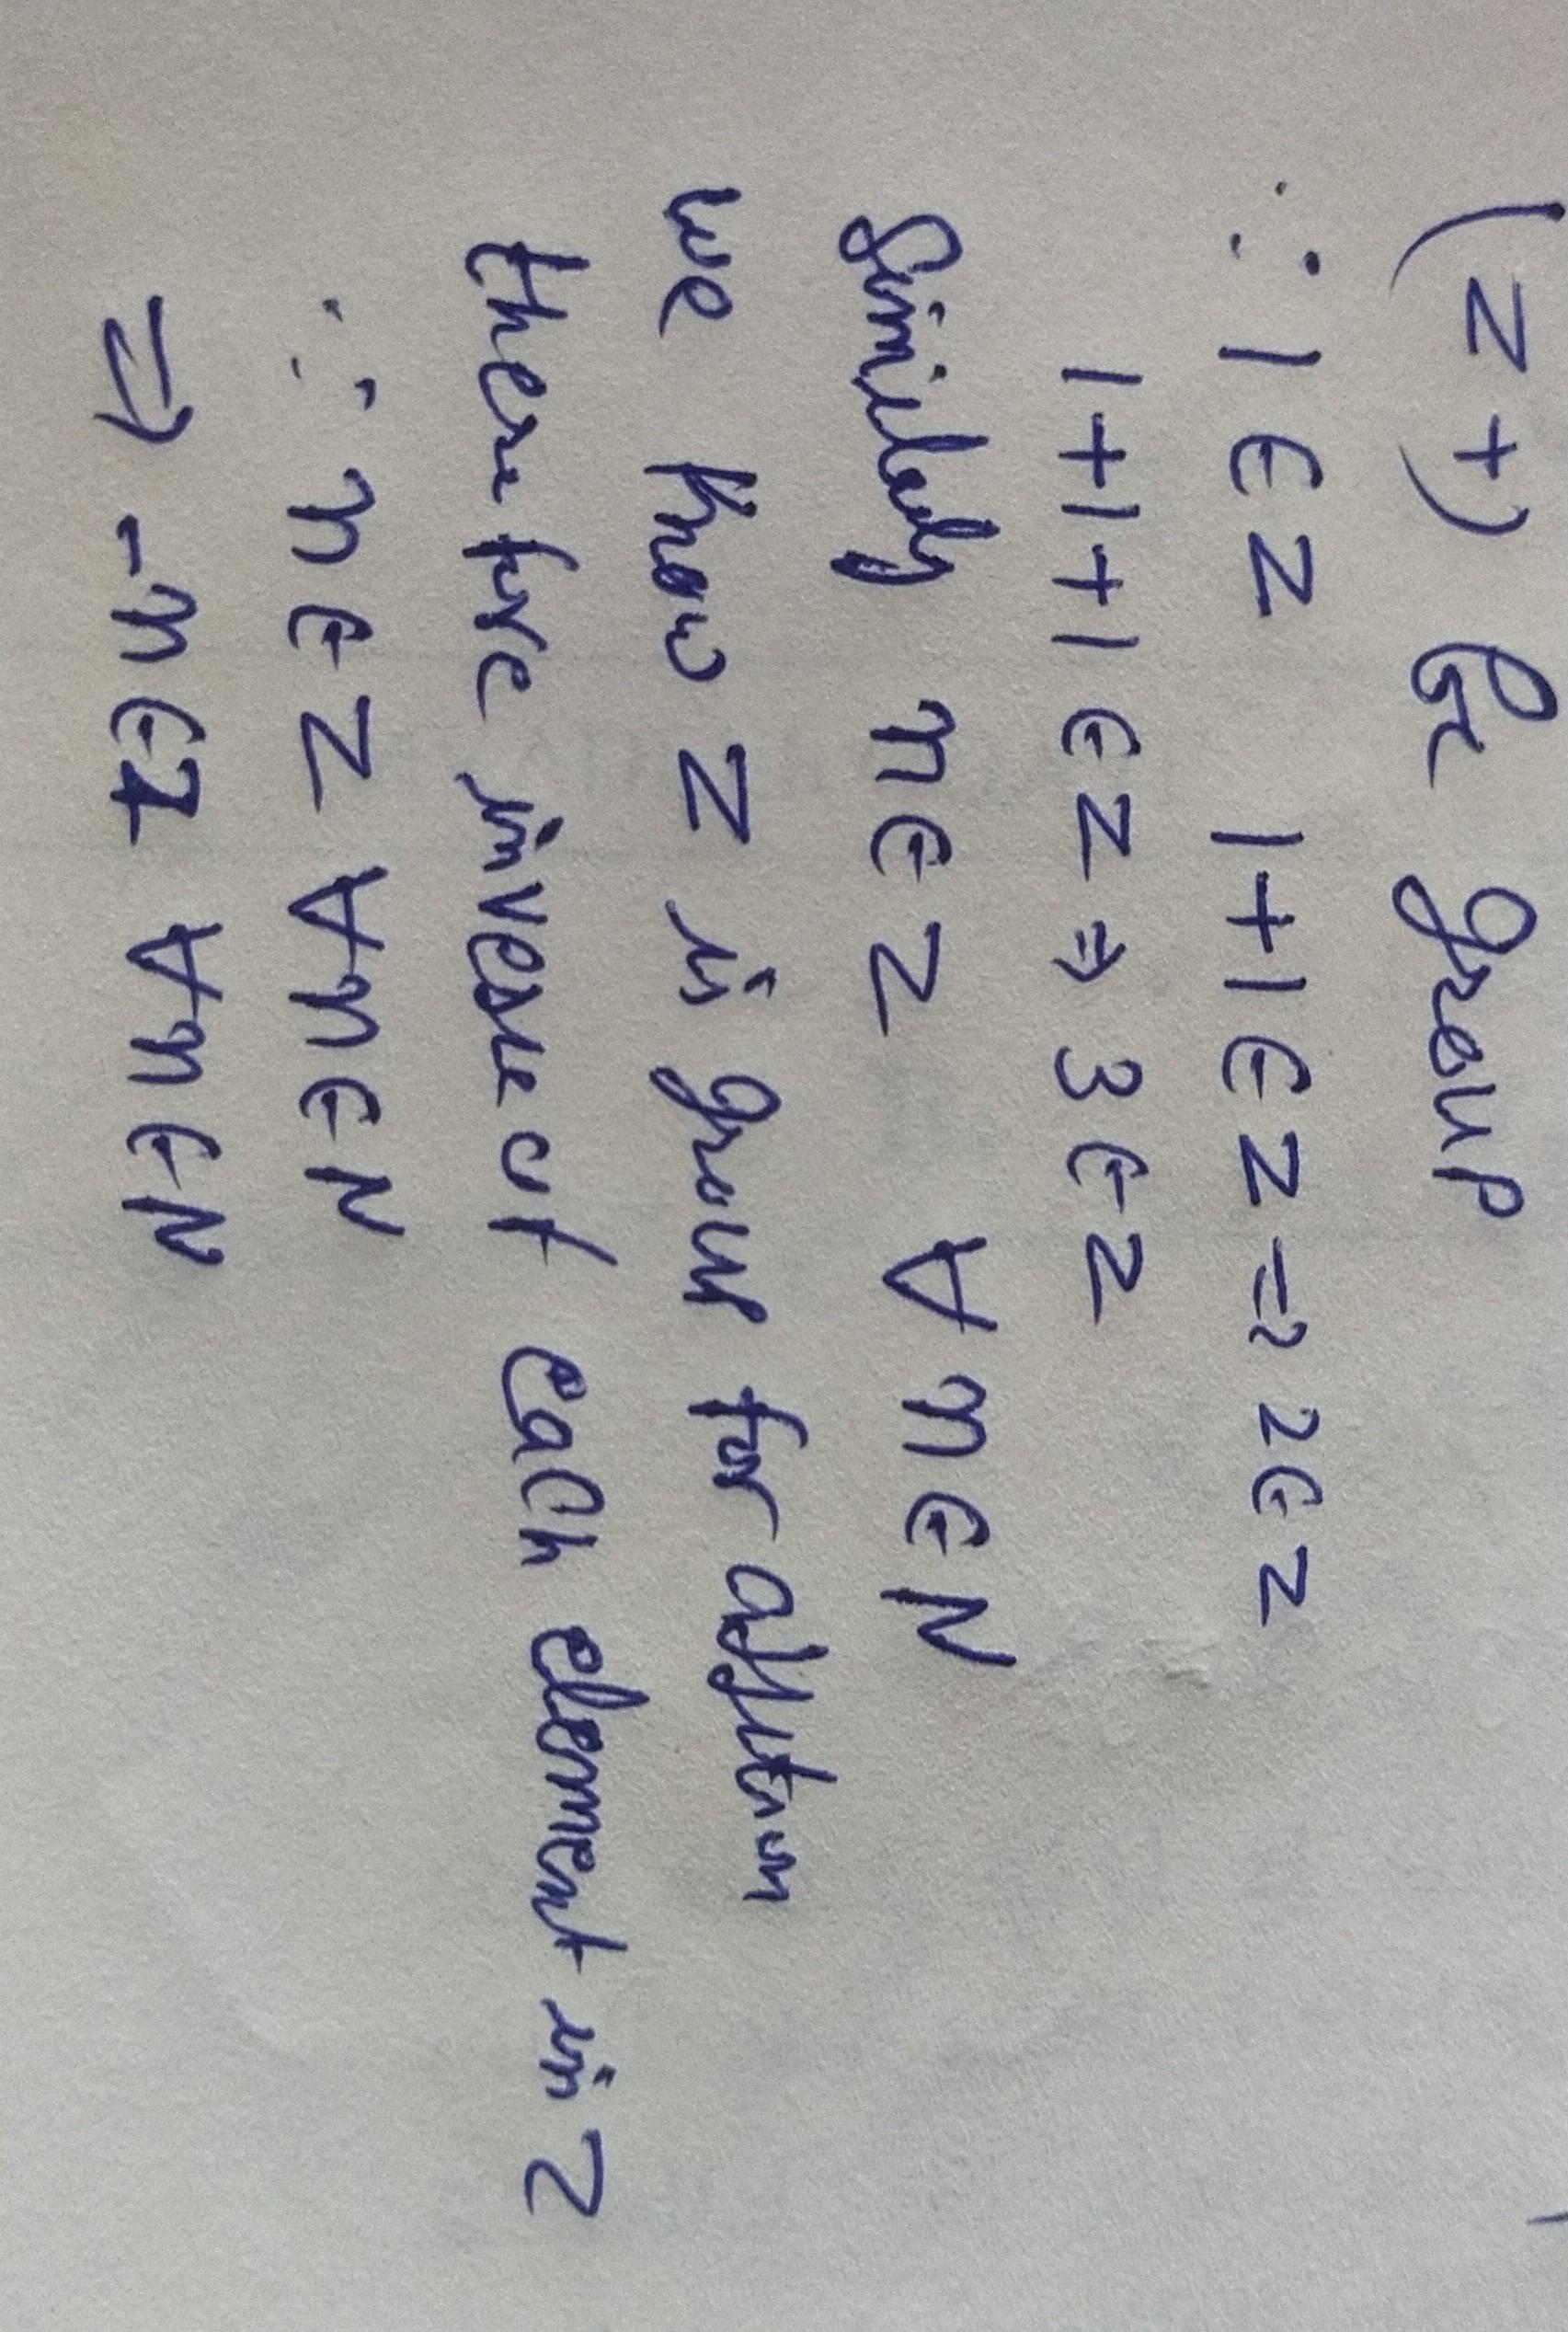 (Z +) be group
∵ 1 ∈ Z 1+1 ∈ Z ⇒ 2 ∈ Z
1+1+1 ∈ Z ⇒ 3 ∈ Z
Similarly n ∈ Z ∀ n ∈ N
we know Z is group for addition
therefore inverse of each element in Z
∵ n ∈ Z ∀ n ∈ N
⇒ -n ∈ Z ∀ n ∈ N